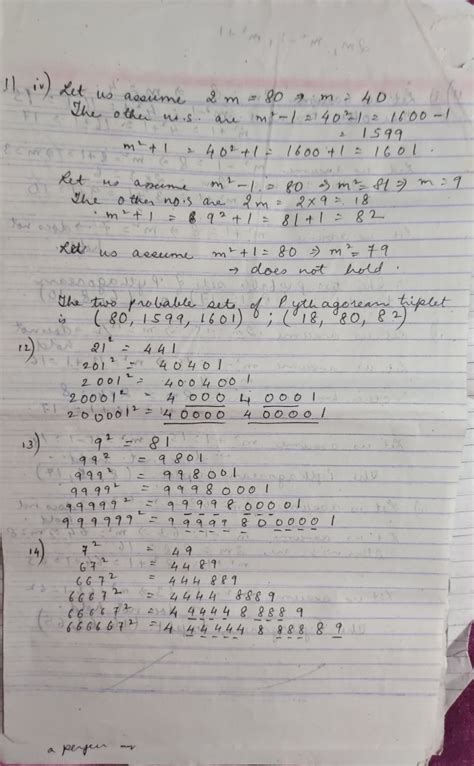 11 iv) Let us assume 2m = 80 ⇒ m = 40
The other no.s. are m²-1 = 40²-1 = 1600-1
= 1599
m²+1 = 40²+1 = 1600+1 = 1601.
Let us assume m²-1 = 80 ⇒ m² = 81 ⇒ m = 9
The other no.s are 2m = 2×9 = 18
m²+1 = 9²+1 = 81+1 = 82
Let us assume m²+1 = 80 ⇒ m² = 79
→ does not hold.
The two probable sets of Pythagorean triplet
is (80, 1599, 1601) ; (18, 80, 82)
12) 21² = 441
201² = 40401
2001² = 4004001
20001² = 4 000 4 0001
200001² = 40000 400001
13) 9² = 81
99² = 9801
999² = 998001
9999² = 99980001
99999² = 9999800001
999999² = 999998000001
14) 7² = 49
67² = 4489
667² = 444889
6667² = 4444 8889
66667² = 4 4444 8 888 9
666667² = 4 44444 8 888 8 9